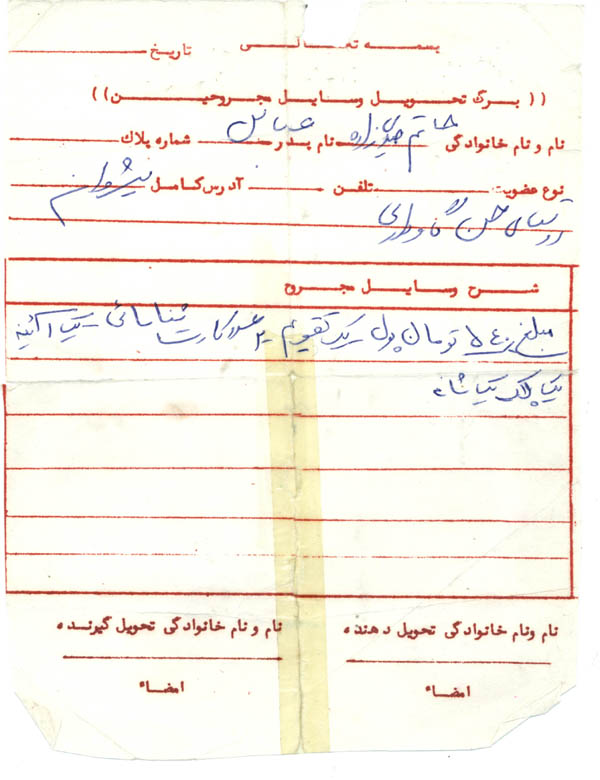 بسمه تعالی
تاریخ
(( برگ تحویل وسایل مجروحین ))
نام و نام خانوادگی خاتم زاده نام پدر عباس شماره پلاک
نوع عضویت تلفن آدرس کامل شیروان
حسن
شرح وسایل مجروح
مبلغ ۵۴۰ تومان پول یک تقویم ۲ عدد کارت شناسائی یک آئینه
یک پلاک یک شانه
نام و نام خانوادگی تحویل دهنده
نام و نام خانوادگی تحویل گیرنده
امضاء
امضاء